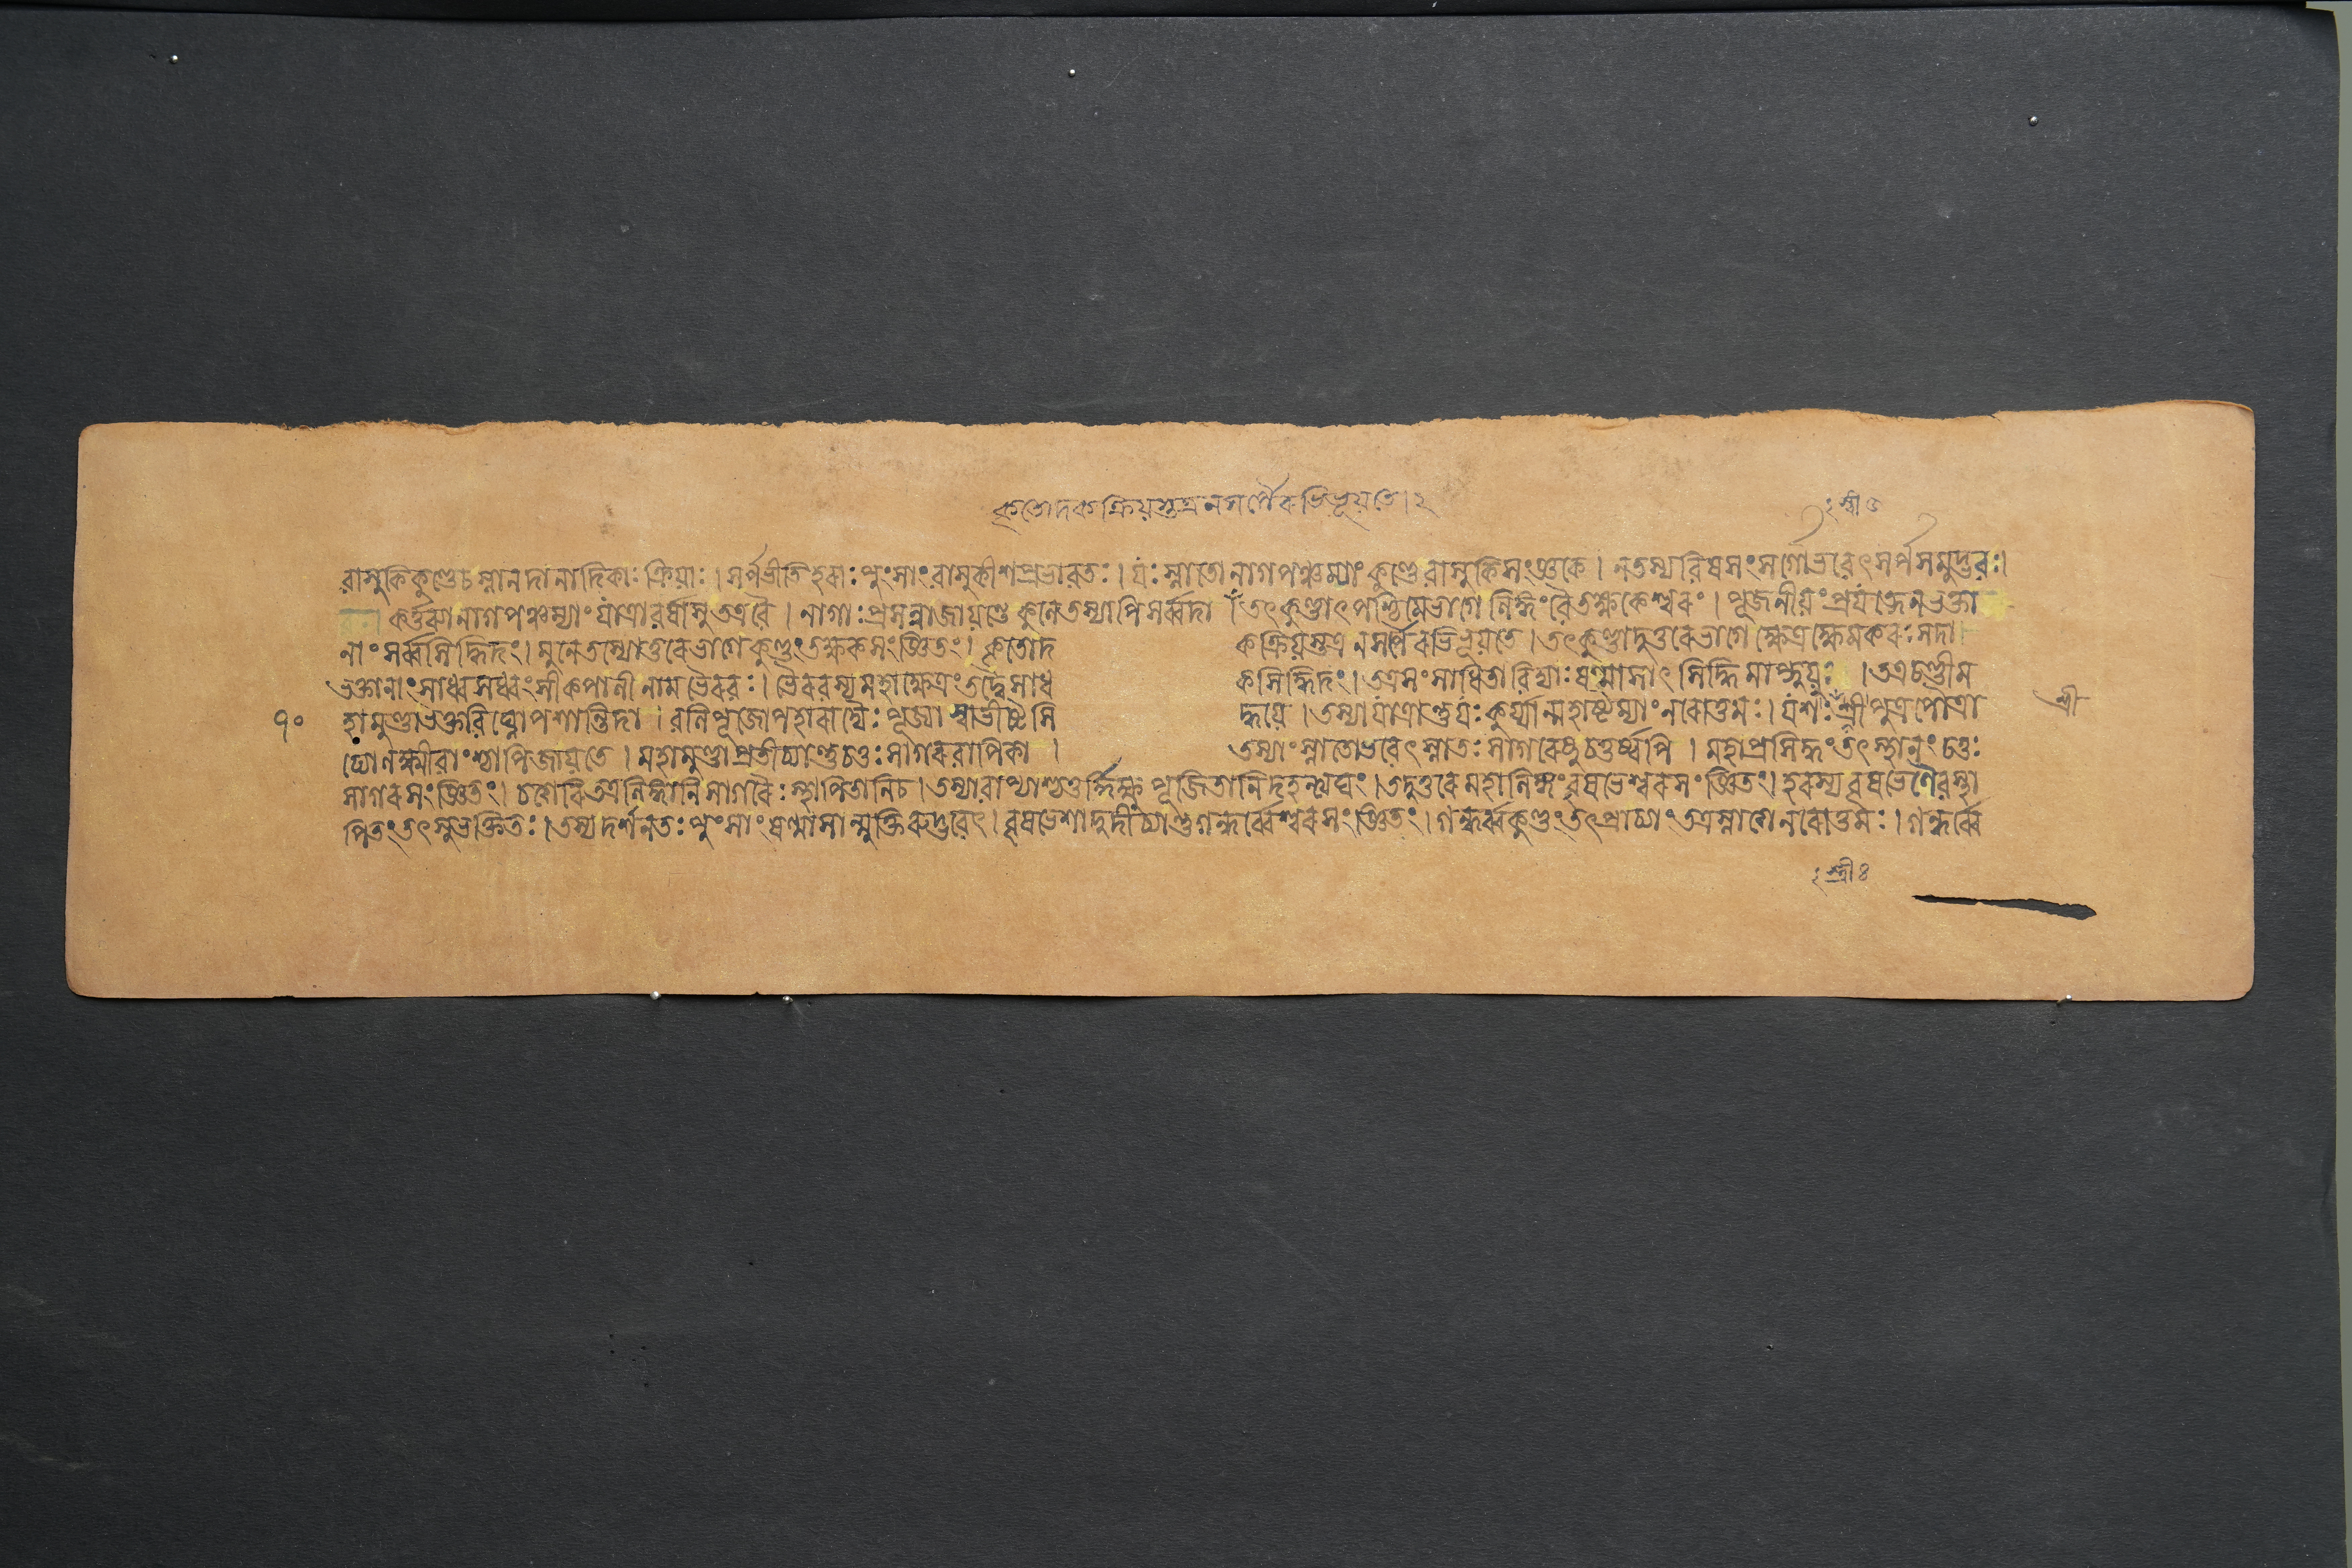 কৃতোদকক্রিয়স্তত্র ন সর্পৈরভিভূয়তে। ২
শ্রী
বাসুকিকুণ্ডেচ স্নানদানাদিকাঃ ক্রিয়াঃ। সর্পভীতিহরাঃ পুংসাং বাসুকীশপ্রভাবতঃ। যঃ স্নাতো নাগপঞ্চম্যাং কুণ্ডে বাসুকিসংজ্ঞকে। ন তস্য বিষসংসর্গো ভবেৎ সর্পসমুদ্ভবঃ।
কর্ত্তব্যা নাগপঞ্চম্যাং যাত্রা বর্ষাসু তত্র বৈ। নাগাঃ প্রসন্না জায়ন্তে কুলে তস্যাপি সর্ব্বদা। তৎকুণ্ডাৎ পশ্চিমে ভাগে লিঙ্গং বৈ তক্ষকেশ্বরং। পূজনীয়ং প্রযত্নেন ভক্তা
নাং সর্ব্বসিদ্ধিদং। মুনে তস্যোত্তরে ভাগে কুণ্ডং তক্ষকসংজ্ঞিতং। কৃতোদকক্রিয়স্তত্র ন সর্পৈরভিভূয়তে। তৎকুণ্ডাদুত্তরে ভাগে ক্ষেত্রক্ষেমকরঃ সদা।
ভক্তানাং সাধ্বসধ্বংসী কপালী নাম ভৈরবঃ। ভৈরবস্য মহাক্ষেত্রং তদ্বৈ সাধকসিদ্ধিদং। তত্র সংসাধিতা বিদ্যাঃ ষণ্মাসাৎ সিদ্ধিমাপ্নুয়ুঃ। তত্র চণ্ডী ম
১০ হামুণ্ডা ভক্তবিঘ্নোপশান্তিদা। বলিপূজোপহারাদ্যৈঃ পূজ্যা স্বাভীষ্টসিদ্ধয়ে। তস্যা যাত্রান্তু যঃ কুর্য্যান্মহাষ্টম্যাং নরোত্তমঃ। যশঃশ্রীপুত্রপৌত্রা শ্রী
ঢ্যো লক্ষ্মীবাংশ্চাপি জায়তে। মহামুণ্ডাপ্রতীচ্যান্তু চতুঃসাগরবাপিকা। তস্যাং স্নাতো ভবেৎ স্নাতঃ সাগরেষু চতুর্ষ্বপি। মহাপ্রসিদ্ধং তৎ স্থানং চতুঃ
সাগরসংজ্ঞিতং। তত্র লিঙ্গানি সাগরৈঃ স্থাপিতানি চ। তস্যা বাপ্যাশ্চতুর্দ্দিক্ষু পূজিতানি দহন্ত্যঘং। তদুত্তরে মহালিঙ্গং বৃষভেশ্বরসংজ্ঞিতং। হরস্য বৃষভেণৈব স্থা
পিতং তৎ সুভক্তিতঃ। তস্য দর্শনতঃ পুংসাং ষণ্মাসান্মুক্তিরুদ্ভবেৎ। বৃষভেশাদুদীচ্যান্তু গন্ধর্ব্বেশ্বরসংজ্ঞিতং। গন্ধর্ব্বকুণ্ডং তৎপ্রাচ্যাং তত্র নরোত্তমঃ। গন্ধর্ব্বে
শ্রী